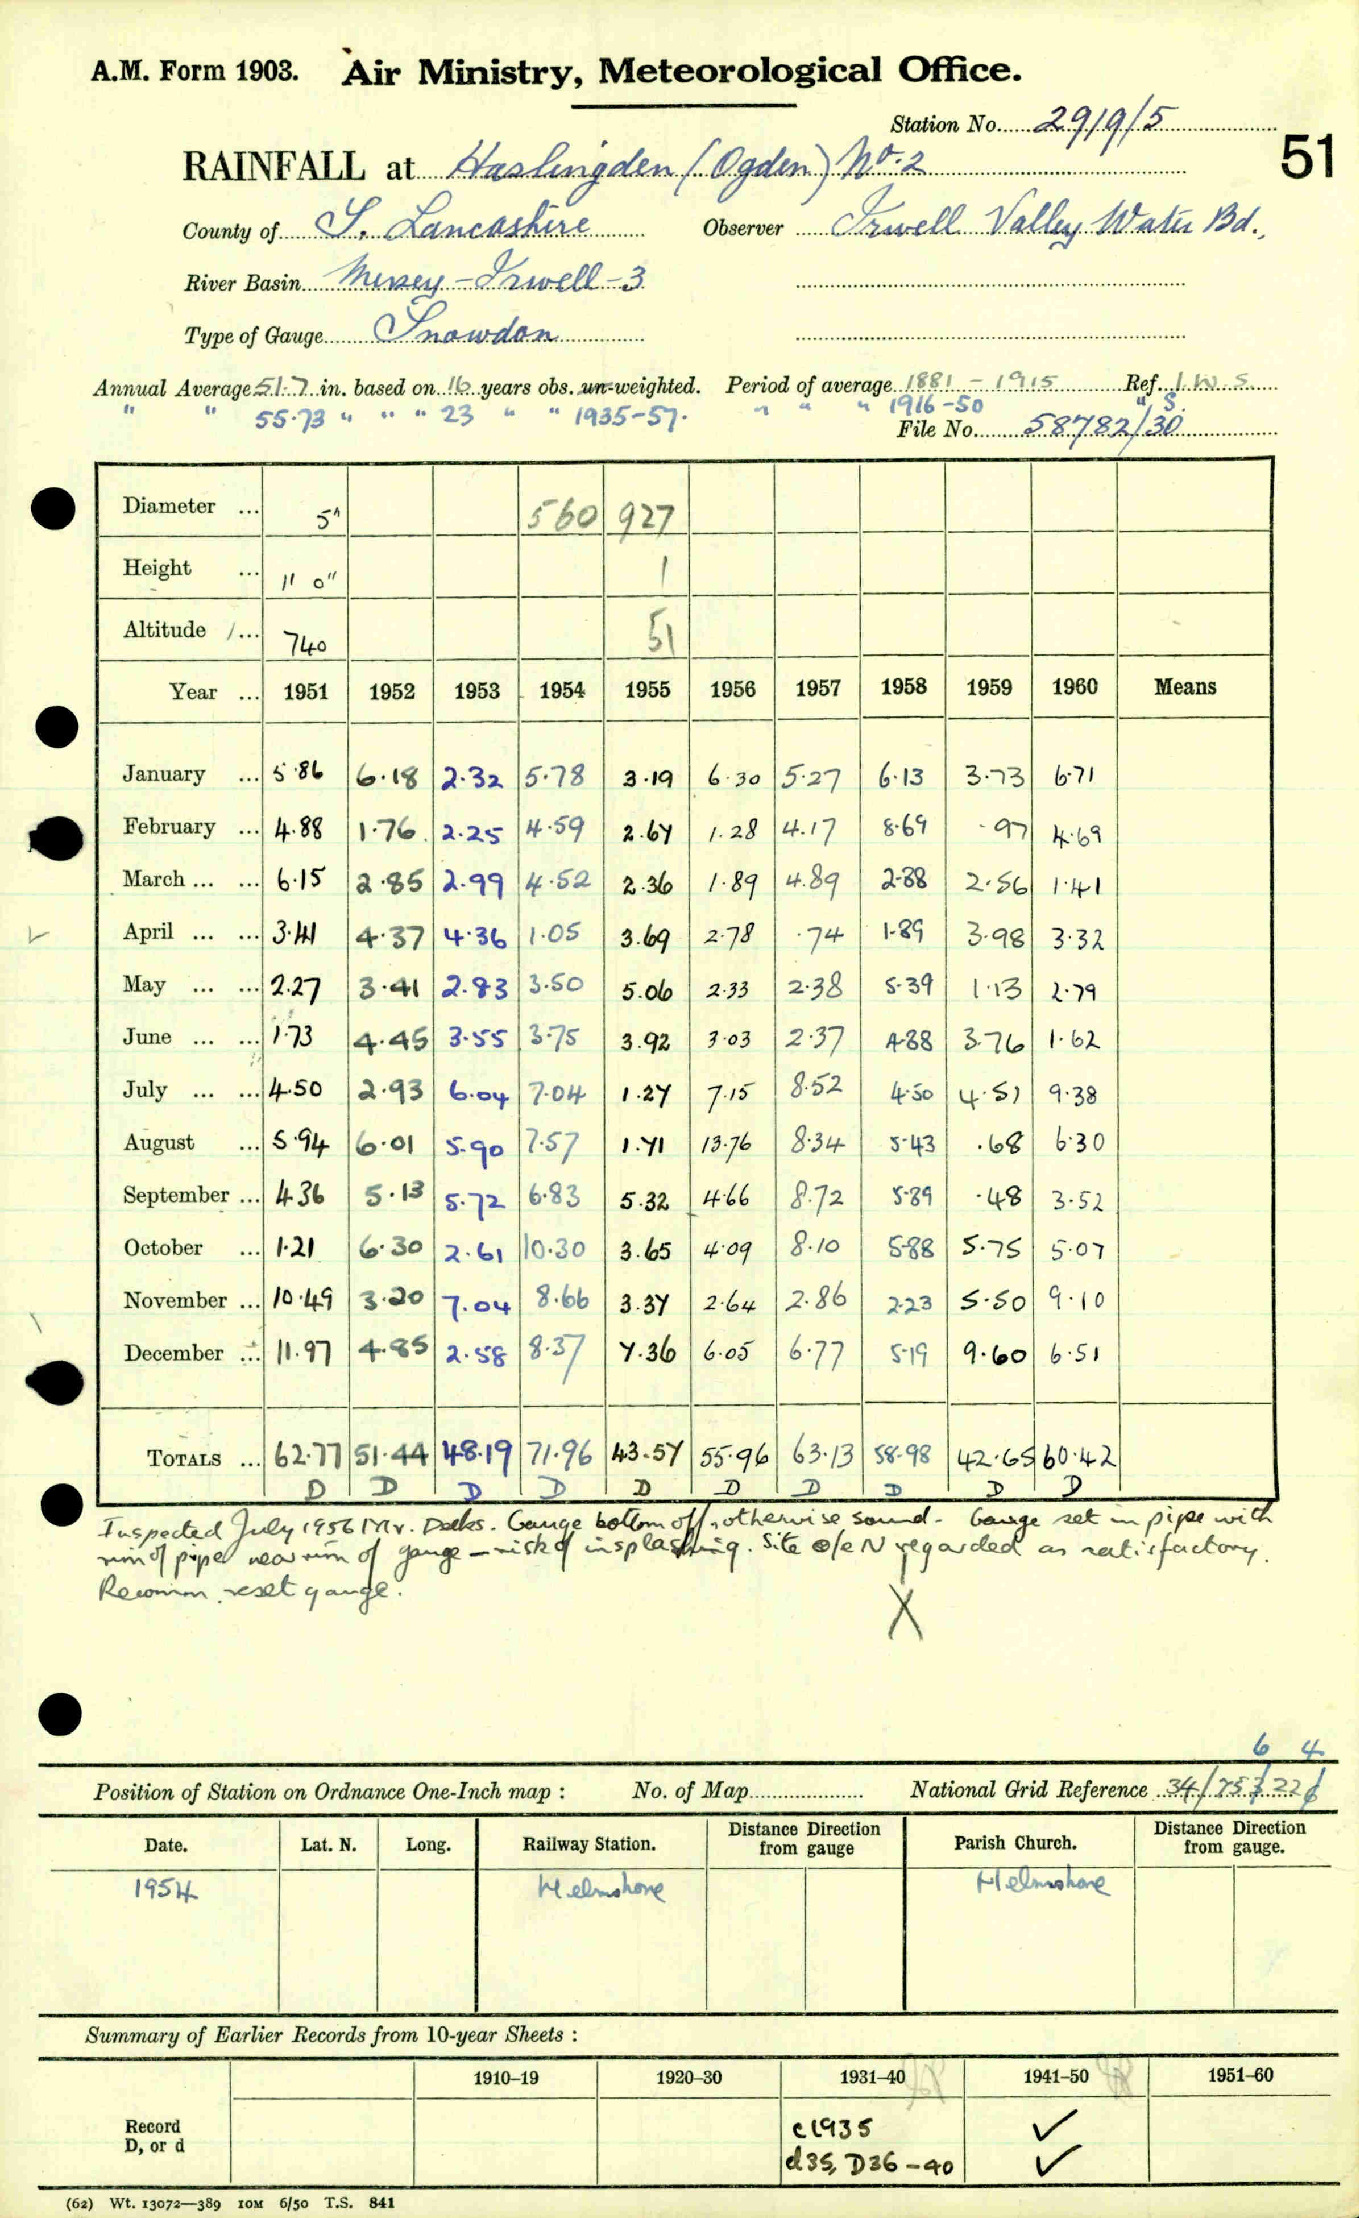 A.M. Form 1903. Air Ministry, Meteorological Office.
Station No. 2919/5
51
RAINFALL at Haslingden (Ogden) No. 2
County of S. Lancashire Observer Irwell Valley Water Bd.,
River Basin Mersey-Irwell-3
Type of Gauge Snowdon
Annual Average 51.7 in. based on 16 years obs. un-weighted. Period of average 1881 - 1915 Ref. I.W.S.
" " 55.73 " " " 23 " " 1935-57. " " " 1916-50 " S.
File No. 58782/30
Diameter ... 5" 560 927
Height ... 1' 0" 1
Altitude ... 740 51
Year ... 1951 1952 1953 1954 1955 1956 1957 1958 1959 1960 Means
January ... 5.86 6.18 2.32 5.78 3.19 6.30 5.27 6.13 3.73 6.71
February ... 4.88 1.76 2.25 4.59 2.67 1.28 4.17 8.69 .97 4.69
March ... ... 6.15 2.85 2.99 4.52 2.36 1.89 4.89 2.88 2.56 1.41
April ... ... 3.41 4.37 4.36 1.05 3.69 2.78 .74 1.89 3.98 3.32
May ... ... 2.27 3.41 2.83 3.50 5.06 2.33 2.38 5.39 1.13 2.79
June ... ... 1.73 4.45 3.55 3.75 3.92 3.03 2.37 4.88 3.76 1.62
July ... ... 4.50 2.93 6.04 7.04 1.27 7.15 8.52 4.50 4.51 9.38
August ... 5.94 6.01 5.90 7.57 1.71 13.76 8.34 5.43 .68 6.30
September ... 4.36 5.13 5.72 6.83 5.32 4.66 8.72 5.89 .48 3.52
October ... 1.21 6.30 2.61 10.30 3.65 4.09 8.10 5.88 5.75 5.07
November ... 10.49 3.20 7.04 8.66 3.37 2.64 2.86 2.23 5.50 9.10
December ... 11.97 4.85 2.58 8.37 7.36 6.05 6.77 5.19 9.60 6.51
TOTALS ... 62.77 51.44 48.19 71.96 43.57 55.96 63.13 58.98 42.65 60.42
D D D D D D D D D D
Inspected July 1956 Mr. Gauge bottom off, otherwise sound. Gauge set in pipe with
rim of pipe near rim of gauge - risk of insplashing. Site o/e N regarded as satisfactory.
Recomm. reset gauge.
X
6 4
Position of Station on Ordnance One-Inch map : No. of Map National Grid Reference 34/753226
Date. Lat. N. Long. Railway Station. Distance from Direction gauge Parish Church. Distance from Direction gauge.
1954 Helmshore Helmshore
Summary of Earlier Records from 10-year Sheets :
1910-19 1920-30 1931-40 1941-50 1951-60
Record c1935 ✓
D, or d d35, D36-40 ✓
(62) Wt. 13072—389 10M 6/50 T.S. 841